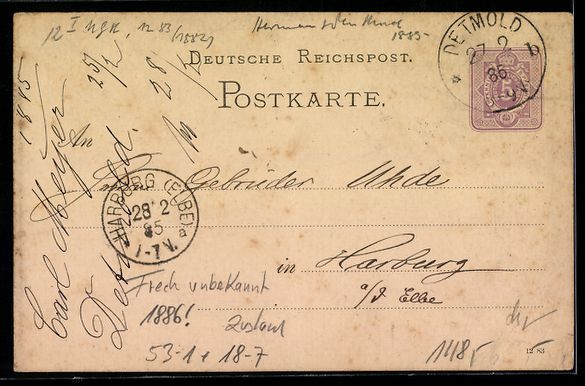 12 I
12 83 (1882)
1885-
DEUTSCHE REICHSPOST.
POSTKARTE.
DETMOLD
27 2
86
b
An
Gebrüder Uhde
in Harburg
a/d Elbe
HARBURG (ELBE)
28 2
85
1-7 V.
a
1885
Carl Meyer
Detmold.
25/2
28/2
Frech unbekannt
1886!
Zustand
53-1 + 18-7
148
12 83